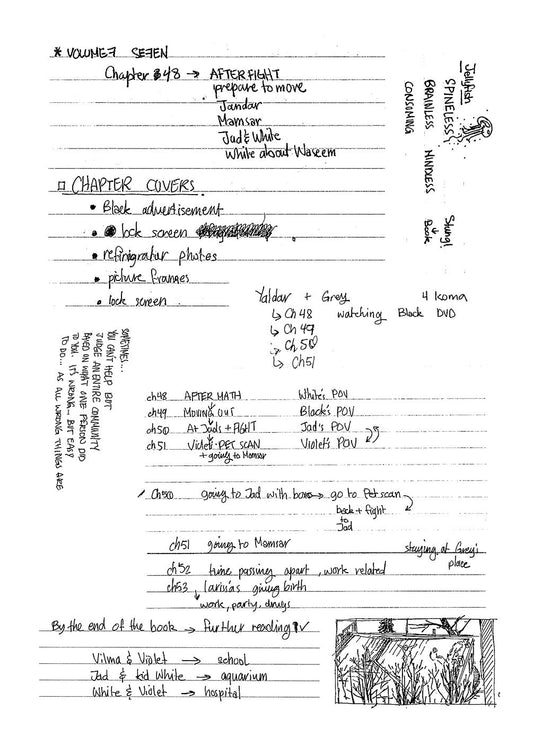 * VOLUME 7 SE7EN
Chapter 48 → AFTERFIGHT
prepare to move
Jandar
Mamsar
Jad & White
White about Waseem
□ CHAPTER COVERS
• Black advertisement
• lock screen
• refirigratur photos
• picture frames
• lock screen
Jellyfish
SPINELESS
BRAINLESS MINDLESS
CONSOMING
Stung!
↓
Book
Yaldar + Grey 4 koma
↳ Ch 48 watching Black DVD
↳ Ch 49
↳ Ch 50
↳ Ch 51
SOMETIMES...
YOU CAN'T HELP BUT
JUDGE AN ENTIRE COMMUNITY
BASED ON WHAT ONE PERSON DID
TO YOU. IT'S WRONG... BUT EASY
TO DO... AS ALL WRONG THINGS ARE
ch48 AFTER MATH White's POV
ch49 MOVING OUT Black's POV
ch50 At Jad's + FIGHT Jad's POV
ch51 Violet-PET SCAN Violet's POV
+ going to Mamsar
Ch50 going to Jad with → go to Petscan
back + fight
to
Jad
ch51 going to Mamsar
staying at Grey's
place
ch52 time passing apart, work related
ch53 Larina's giving birth
work, party, drugs
By the end of the book → Further reading IV
Vilma & Violet → school
Jad & kid White → aquarium
White & Violet → hospital